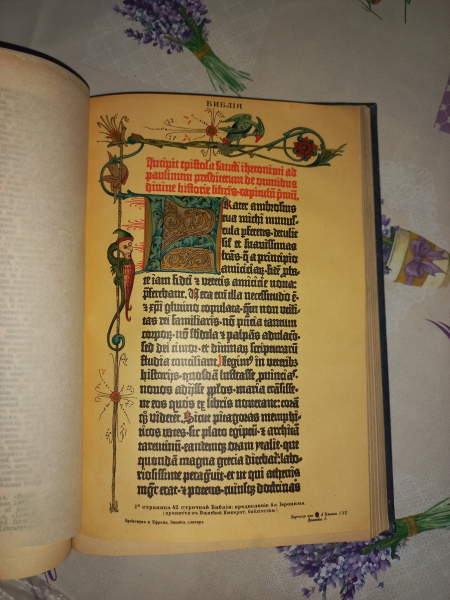 БИБЛІЯ
Incipit epistola sancti iheronimi ad
paulinum presbiterum de omnibus
divine historie libris · capitulũ p̃mũ.
Frater ambrosius
tua michi munus-
cula ꝑferens · detulit
sil' et suavissimas
lr̃as · q̃ a principio
amiciciaꝝ · fidẽ ꝓba-
te iam fidei et veteris amicicie nova ·
p̃ferebant. Vera eni illa necessitudo ẽ ·
et xp̃i glutino copulata · qm̃ non utili-
tas rei familiaris · nõ pñcia tantum
corpoꝝ · nõ sbdola et palpãs adulacõ ·
sed dei timor · et divinaꝝ scripturarũ
studia conciliant. Legimꝰ in veteribꝫ
historijs · quosdã lustrasse ꝓvincias ·
novos adijsse ꝓplos · maria trãsisse ·
ut eos quos ex libris noverant · corã
qꝫ viderẽt. Sicut pitagoras memphi-
ticos vates · sic plato egiptũ · et architã
tarentinũ · eandemqꝫ oram ytalie · que
quondã magna grecia dicebat · labo-
riosissime peragvit · et ut qui athenis
mgr̃ erat · et potens · cuiusqꝫ doctrinas
1ª страница 42 строчной Библіи: предисловіе бл. Іеронима.
(хранится въ Импер. Публ. библіотекѣ.)
Брокгаузъ и Ефронъ. Энцикл. словарь.